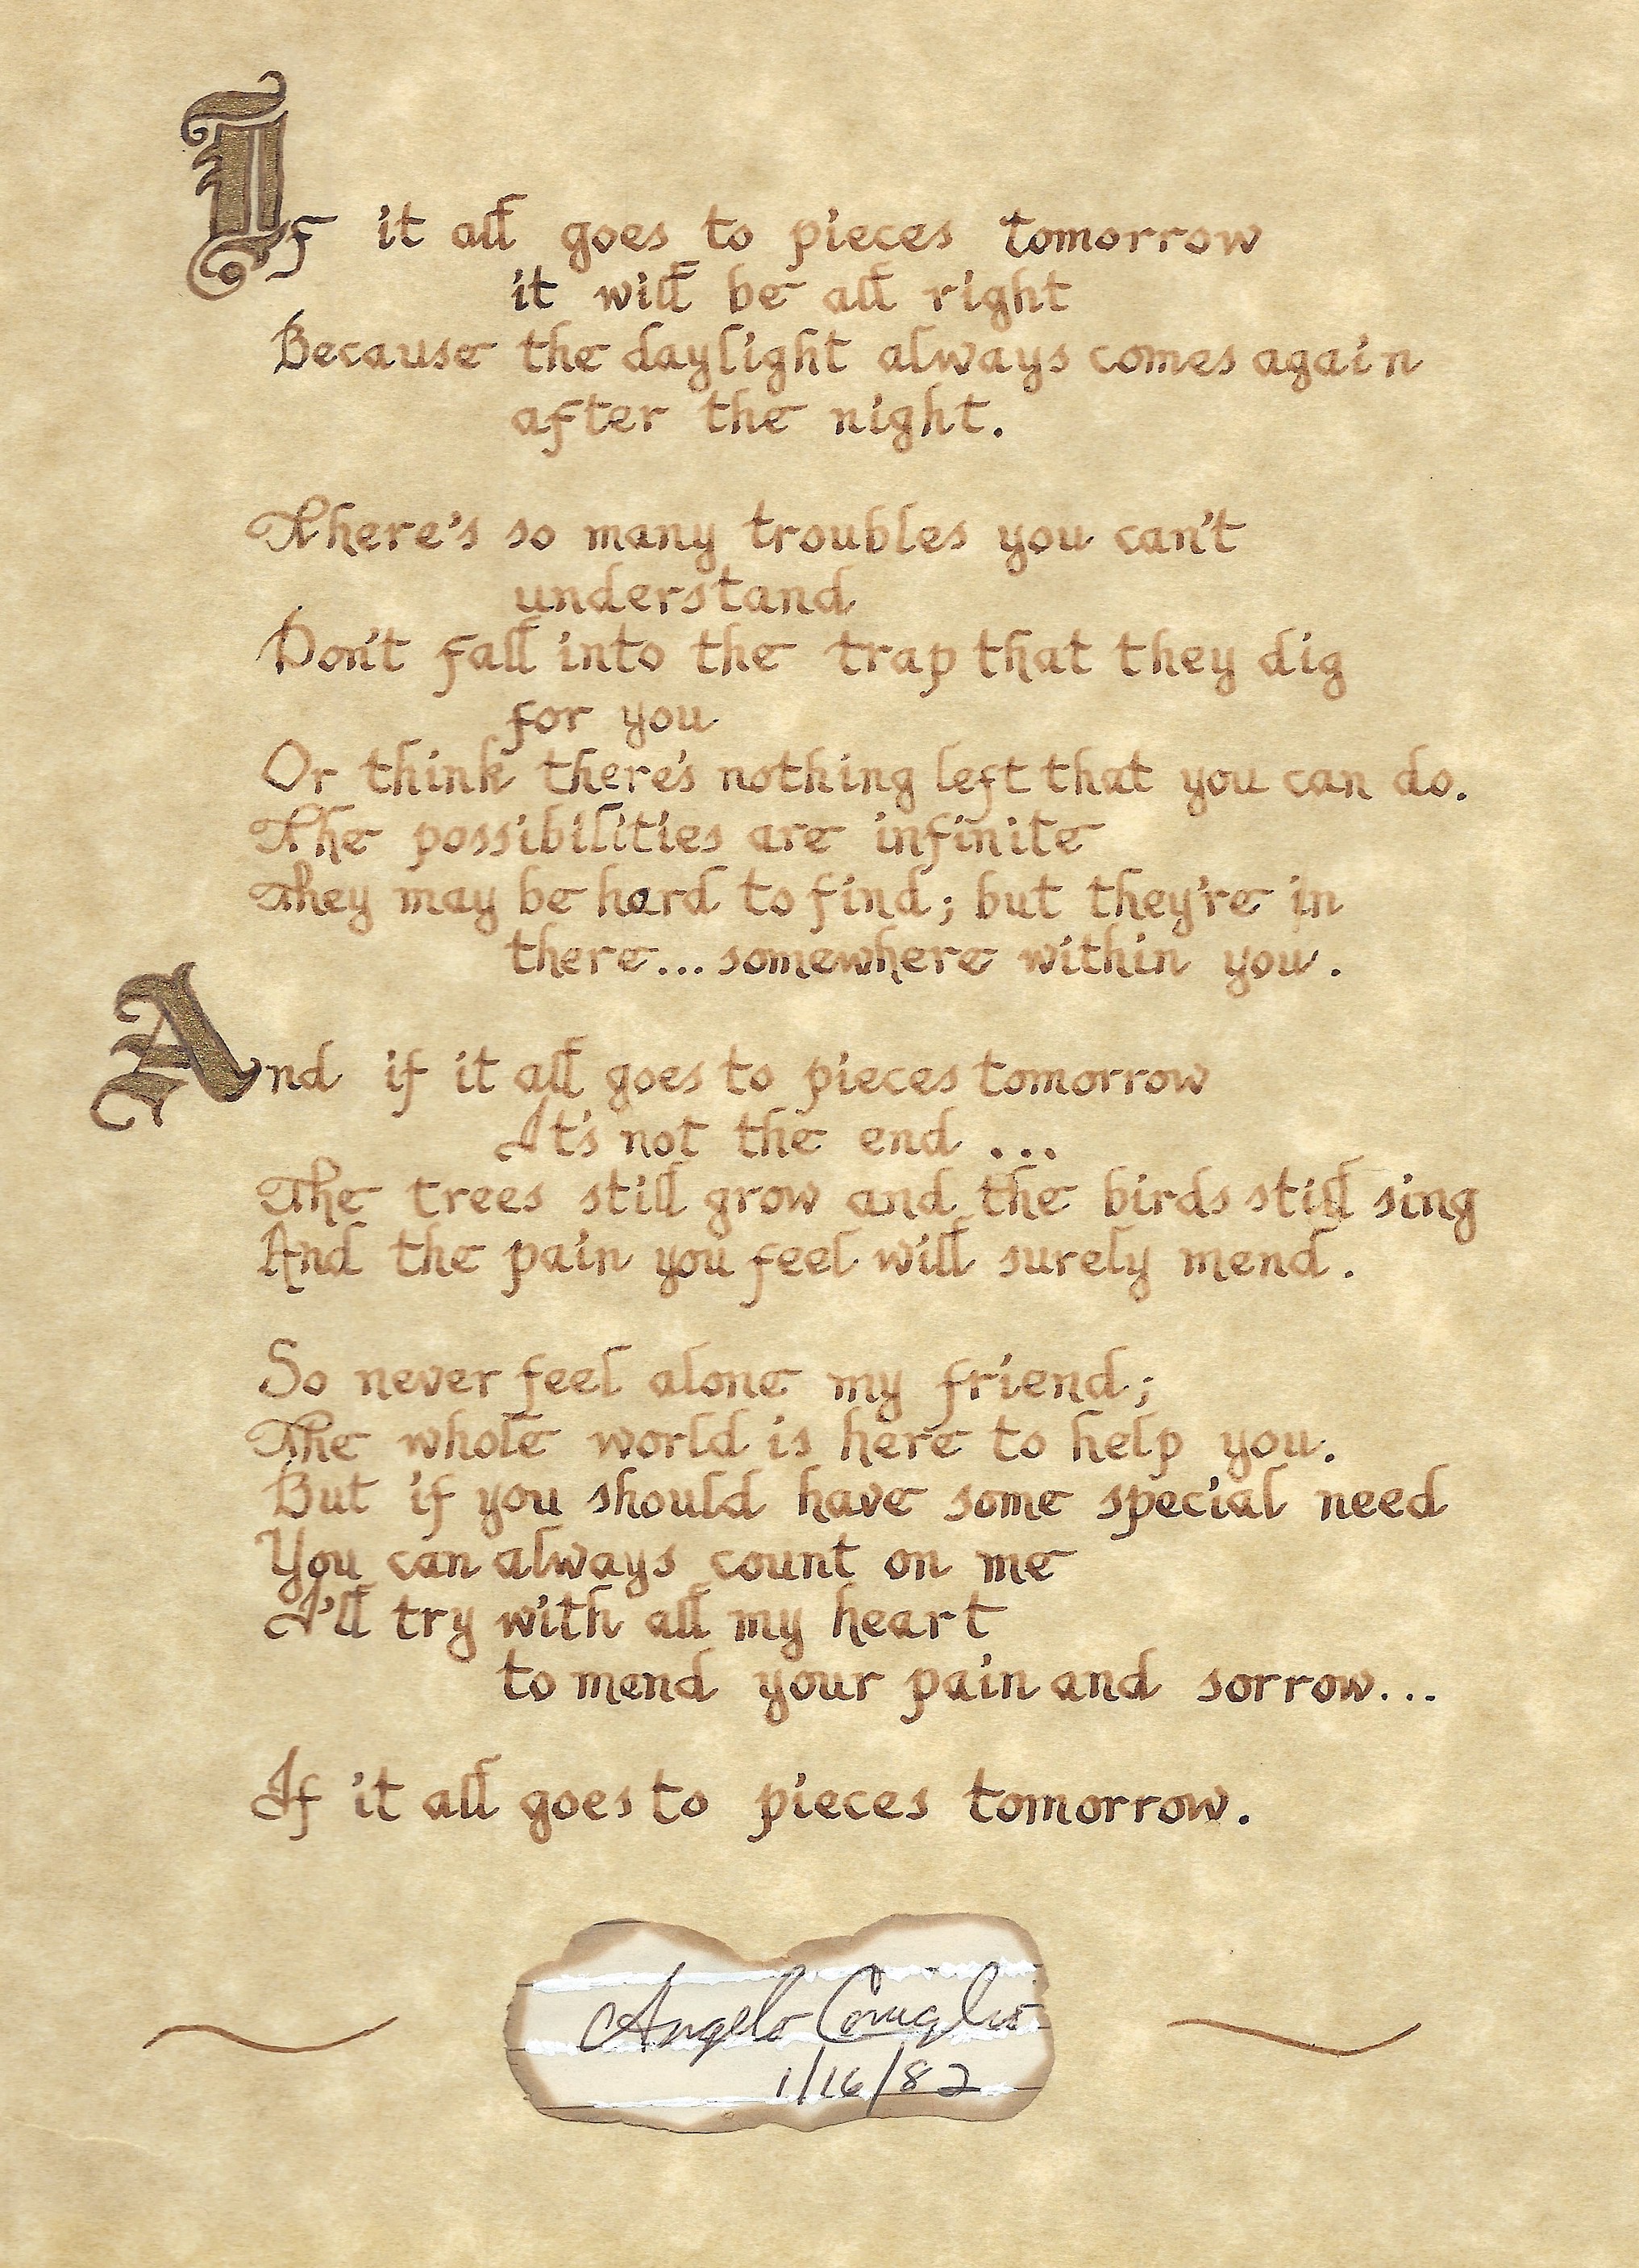 If it all goes to pieces tomorrow
it will be all right
Because the daylight always comes again
after the night.
There's so many troubles you can't
understand
Don't fall into the trap that they dig
for you
Or think there's nothing left that you can do.
The possibilities are infinite
They may be hard to find; but they're in
there... somewhere within you.
And if it all goes to pieces tomorrow
It's not the end ...
The trees still grow and the birds still sing
And the pain you feel will surely mend.
So never feel alone my friend;
The whole world is here to help you.
But if you should have some special need
You can always count on me
I'll try with all my heart
to mend your pain and sorrow...
If it all goes to pieces tomorrow.
Angelo Coniglio
1/16/82